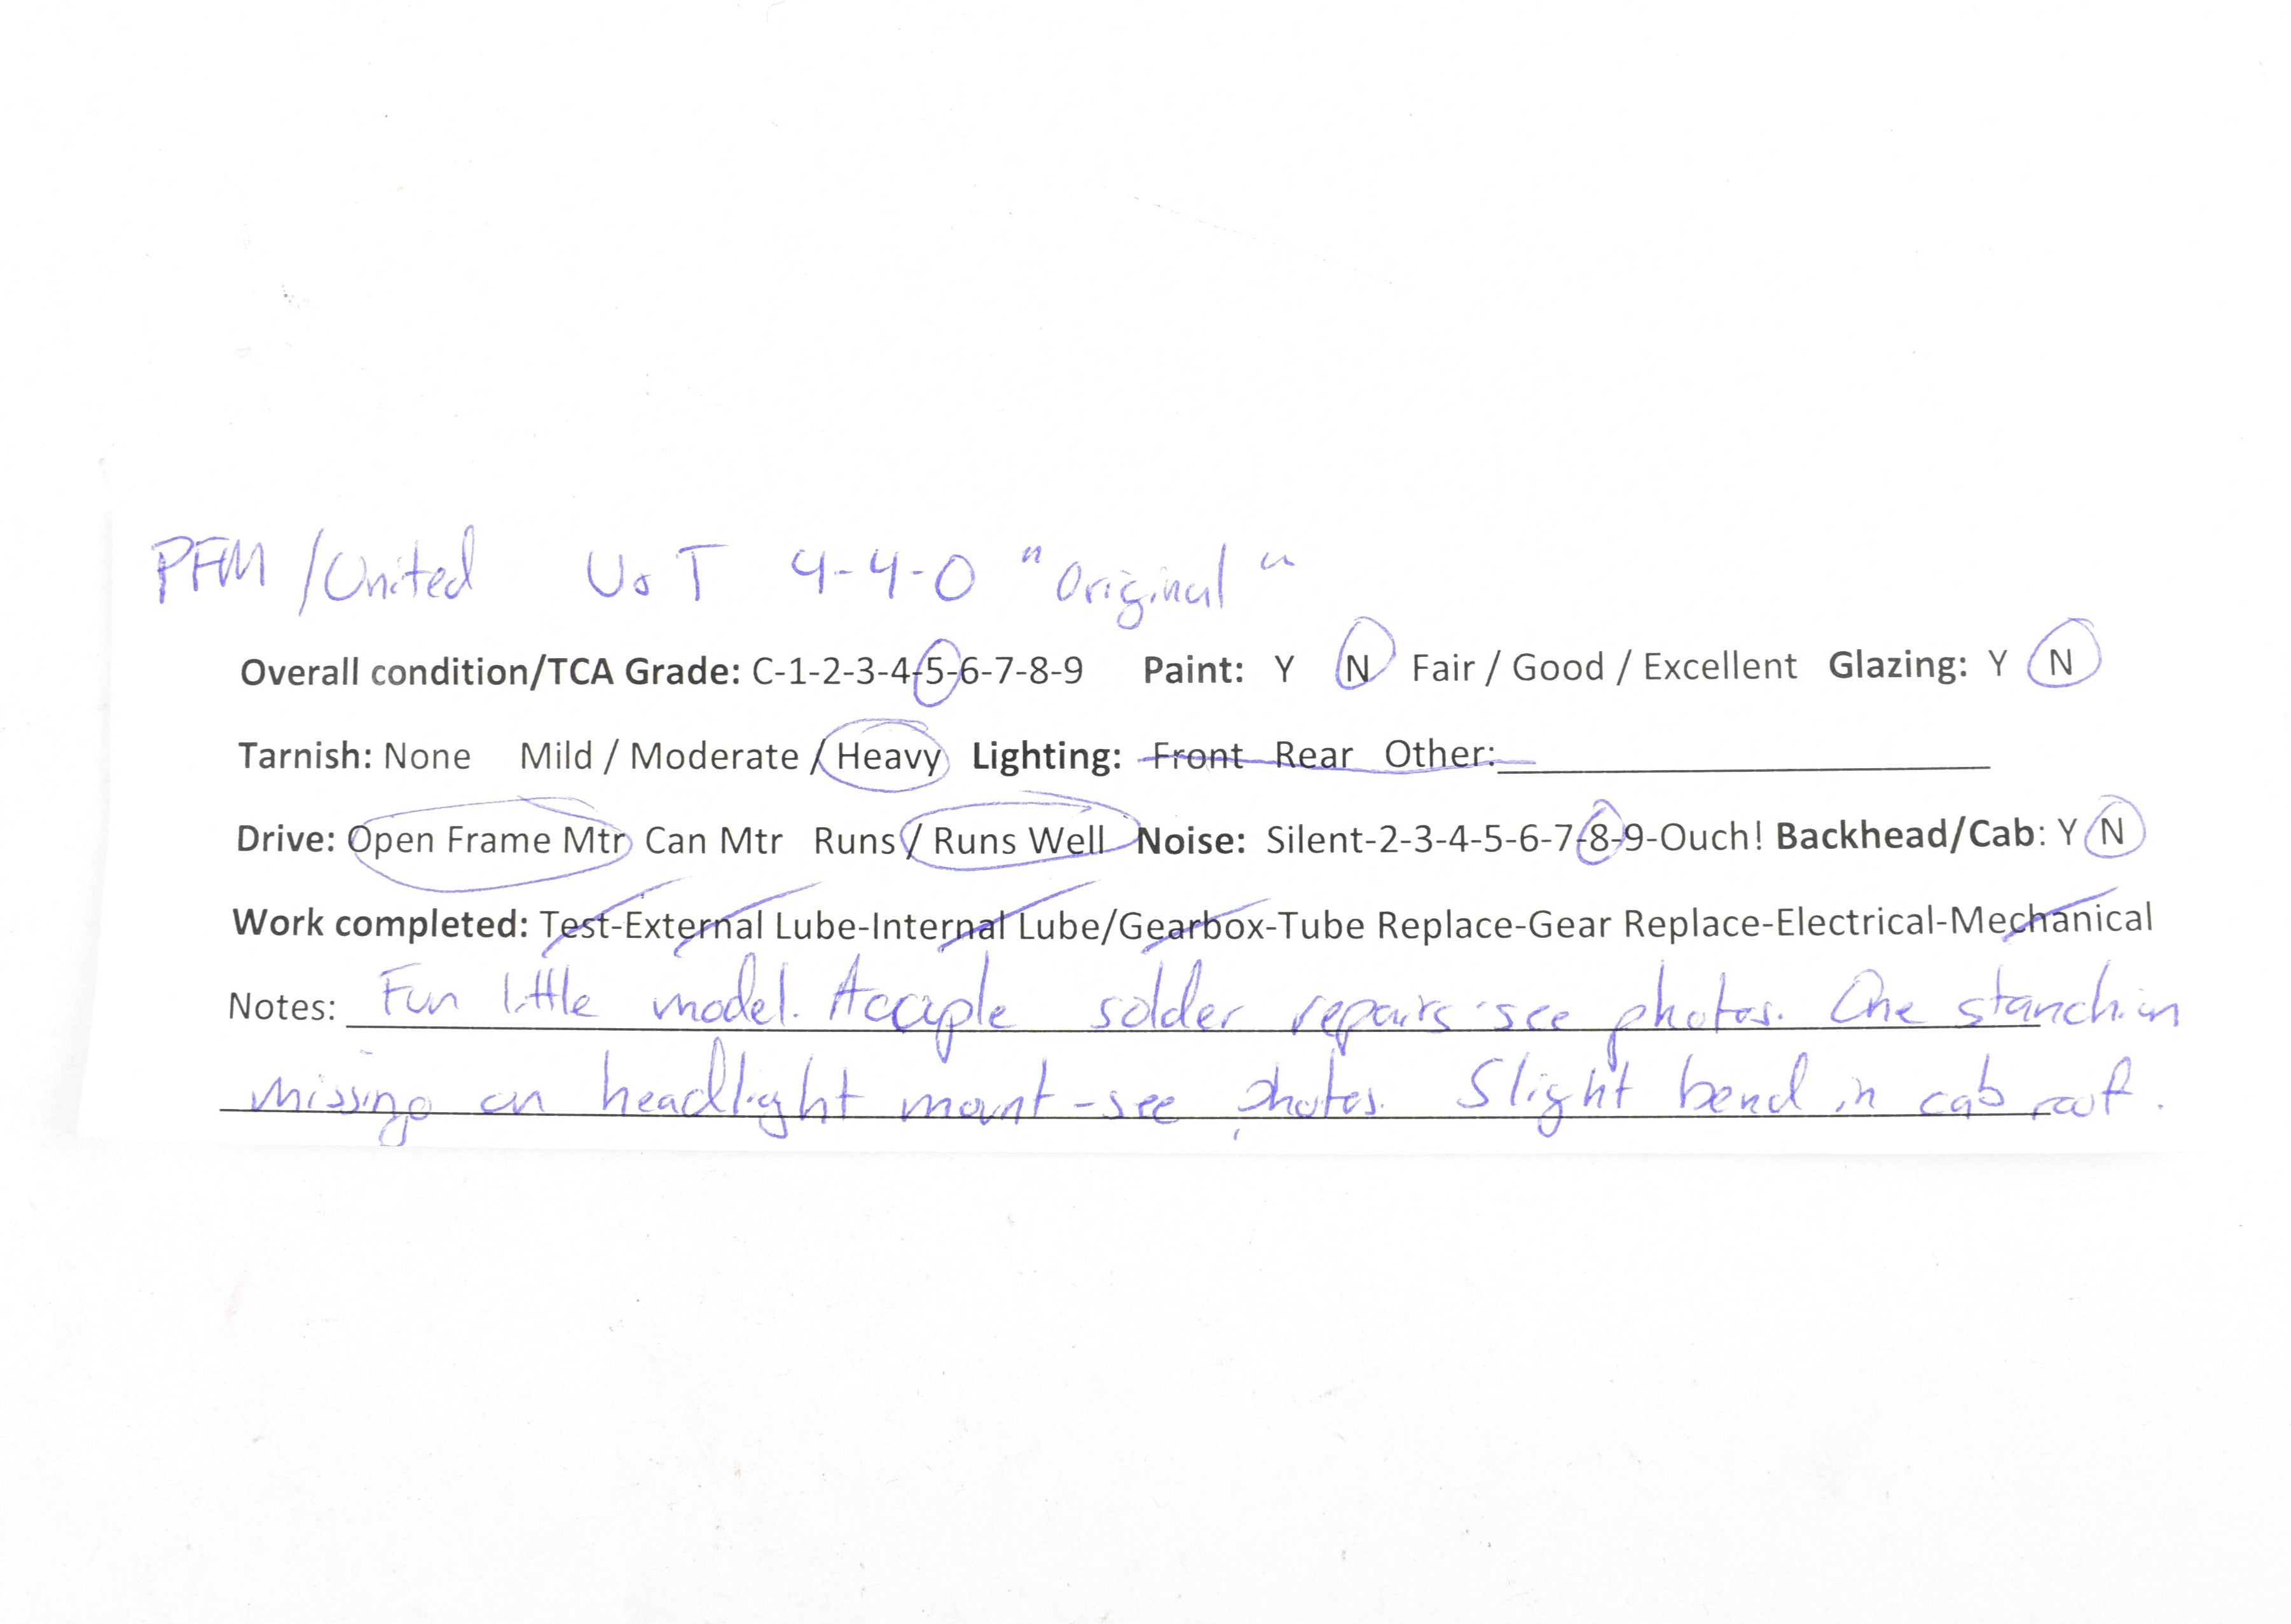 PFM /United V&T 4-4-0 "Original"
Overall condition/TCA Grade: C-1-2-3-4-5-6-7-8-9 Paint: Y N Fair / Good / Excellent Glazing: Y N
Tarnish: None Mild / Moderate / Heavy Lighting: Front Rear Other:
Drive: Open Frame Mtr Can Mtr Runs / Runs Well Noise: Silent-2-3-4-5-6-7-8-9-Ouch! Backhead/Cab: Y N
Work completed: Test-External Lube-Internal Lube/Gearbox-Tube Replace-Gear Replace-Electrical-Mechanical
Notes: Fun little model. solder repairs-see photos. One stanchion
missing on headlight mount-see photos. Slight bend in cab roof.